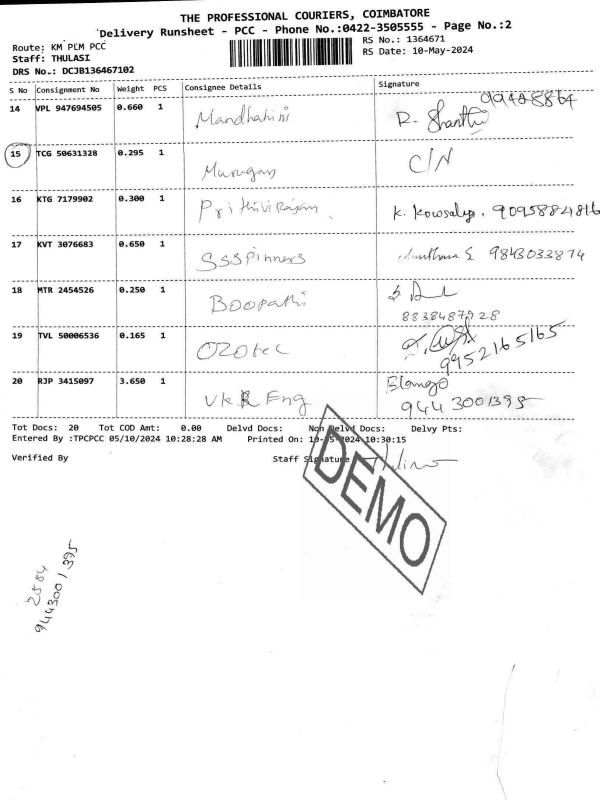 THE PROFESSIONAL COURIERS, COIMBATORE
Delivery Runsheet - PCC - Phone No.:0422-3505555 - Page No.:2
Route: KM PLM PCC
RS No.: 1364671
Staff: THULASI
RS Date: 10-May-2024
DRS No.: DCJB136467102
S No Consignment No Weight PCS Consignee Details Signature
14 VPL 947694505 0.660 1 Mandhahini R. Shanthi
15 TCG 50631328 0.295 1 Murugan C/N
16 KTG 7179902 0.300 1 Prithivirajan K. Kowsalya. 9095884816
17 KVT 3076683 0.650 1 SSSPinners 9843033874
18 MTR 2454526 0.250 1 Boopathi
8838487928
19 TVL 50006536 0.165 1 Ozotec
9952165165
20 RJP 3415097 3.650 1 VKR Eng Elango
9443001395
Tot Docs: 20 Tot COD Amt: 0.00 Delvd Docs: Non Delvd Docs: Delvy Pts:
Entered By :TPCPCC 05/10/2024 10:28:28 AM Printed On: 10-05-2024 10:30:15
Verified By Staff Signature
DEMO
2584
9443001395